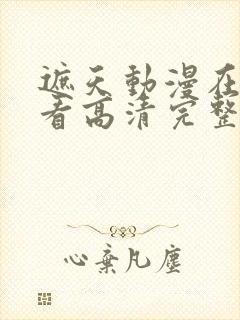 遮天動漫在
看高清完整
心棄凡塵